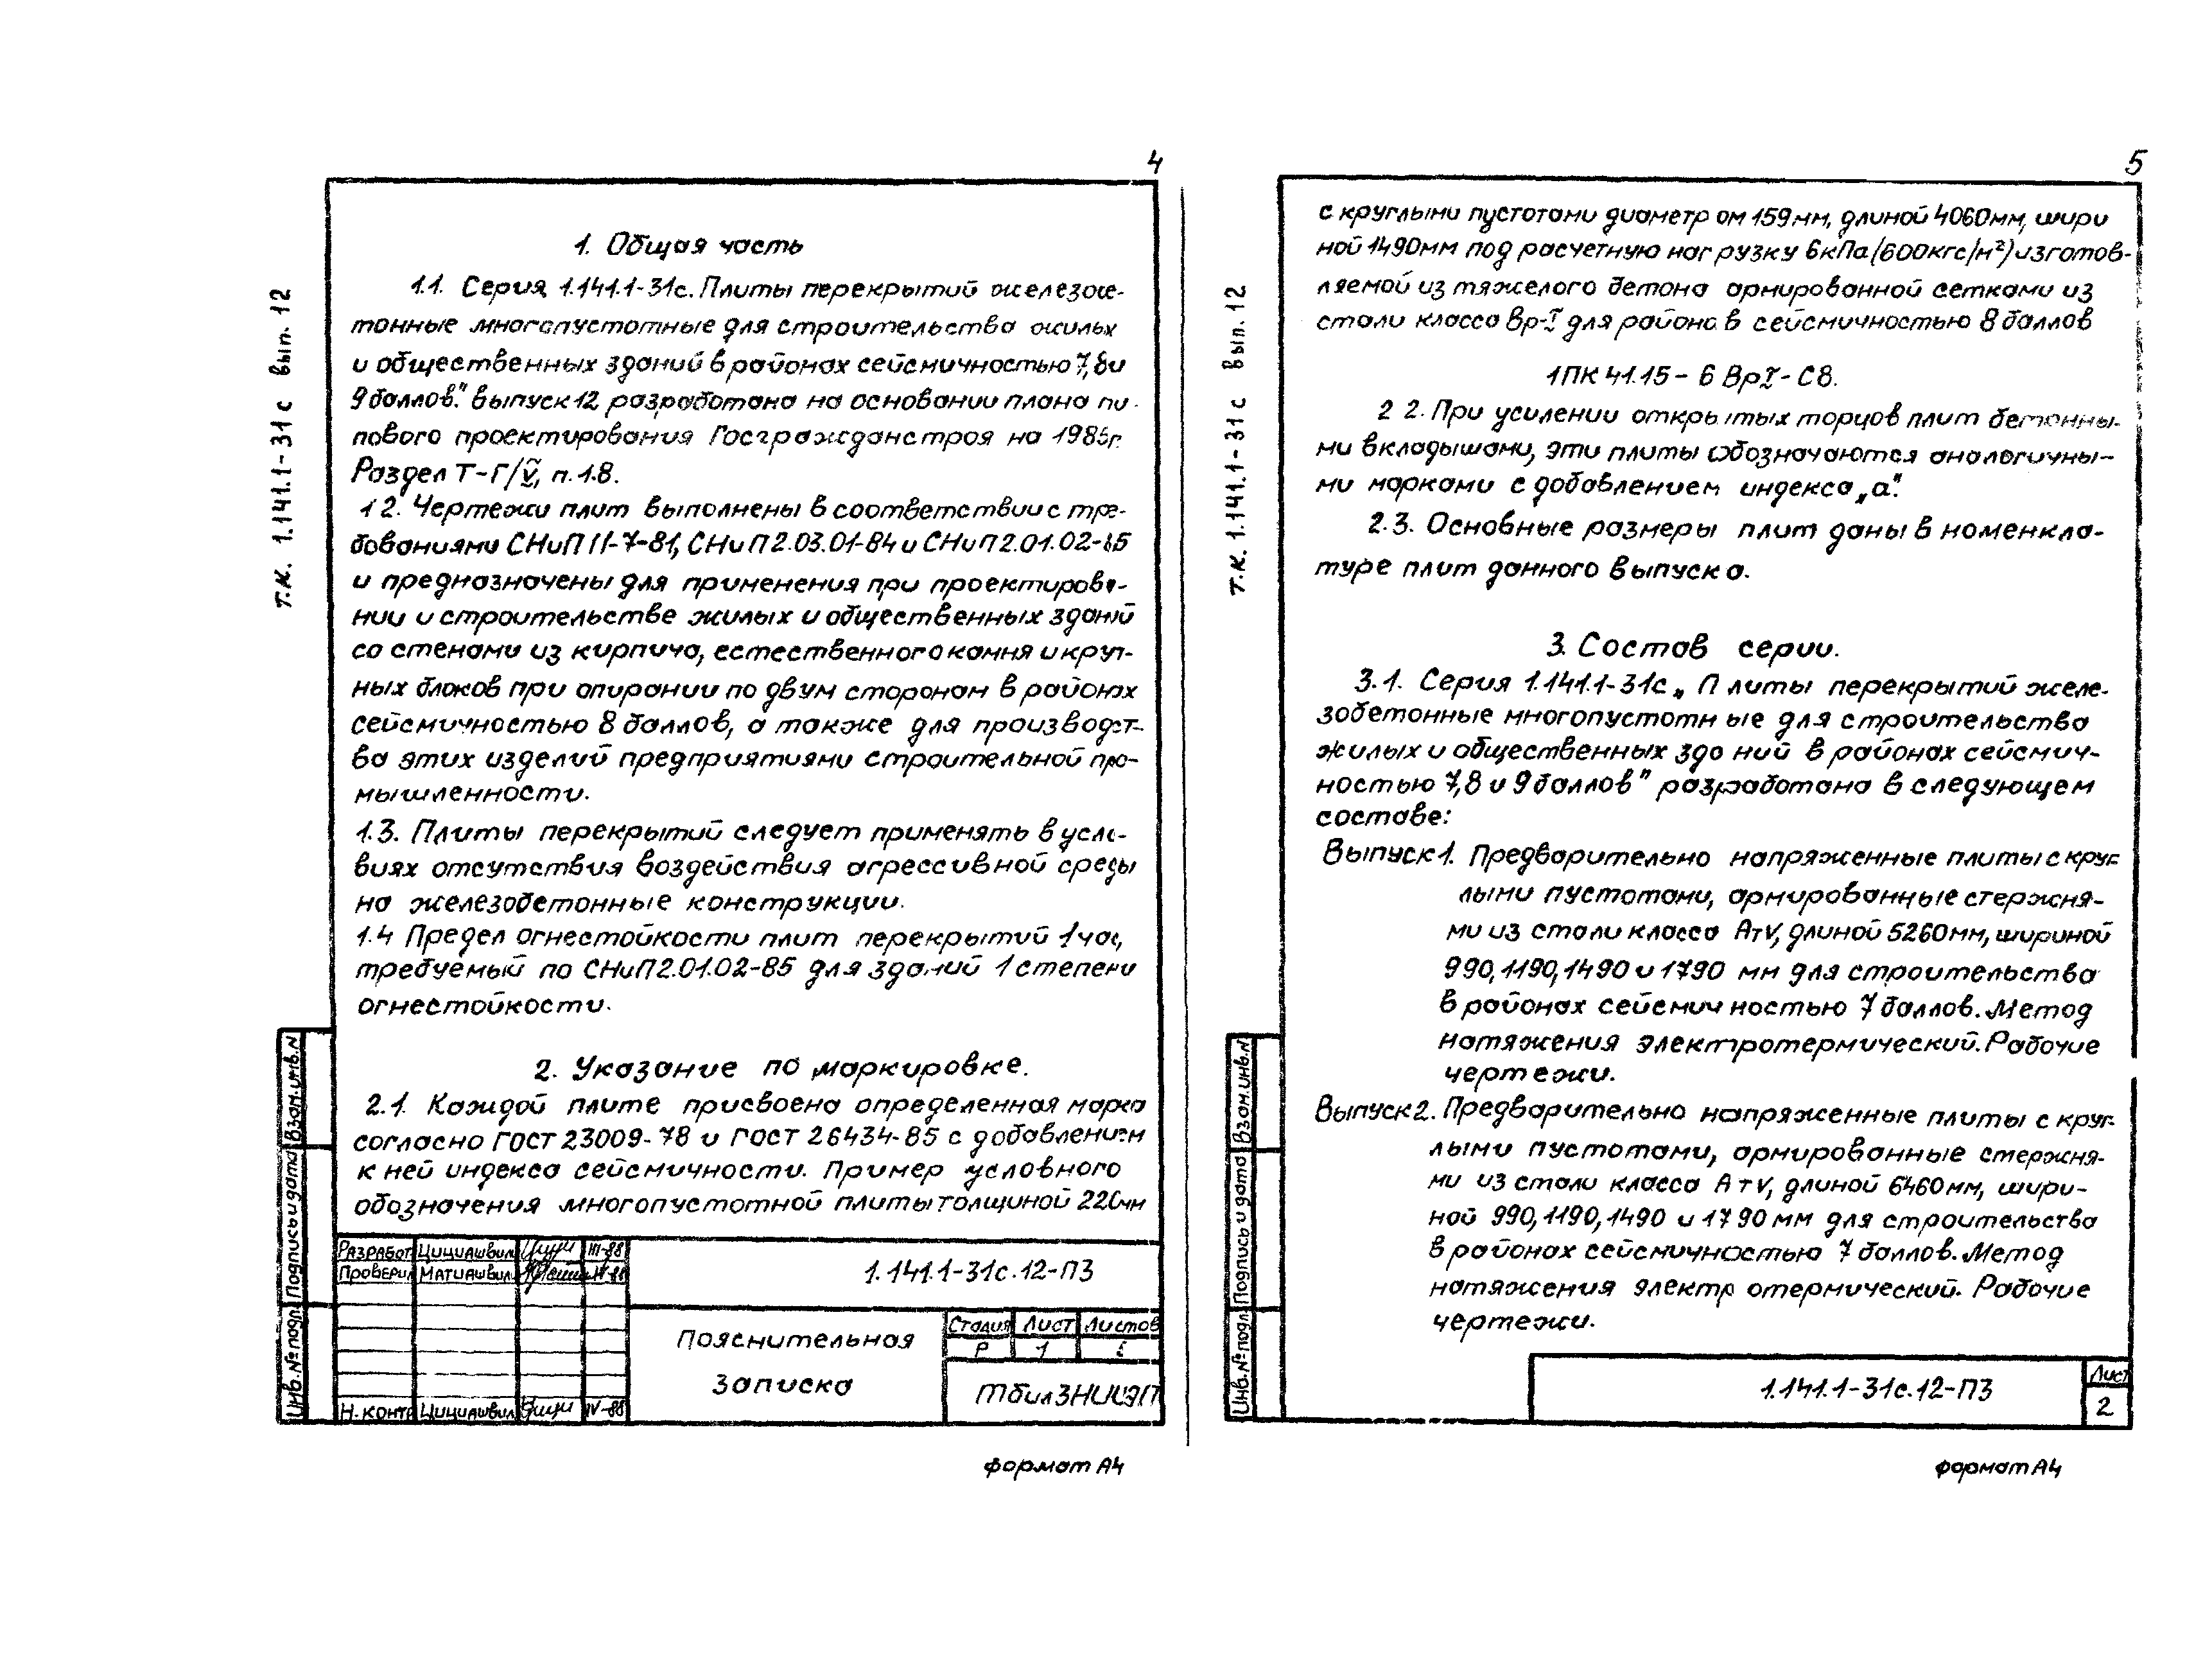 4
т.к. 1.141.1-31с вып. 12
1. Общая часть
1.1. Серия 1.141.1-31с. Плиты перекрытий железо-
тонные многопустотные для строительства жилых
и общественных зданий в районах сейсмичностью 7,8 и
9 баллов." Выпуск 12 разработана на основании плана ти-
пового проектирования Госгражданстроя на 1985г.
Раздел Т-Г/V, п.1.8.
1 2. Чертежи плит выполнены в соответствии с тре-
бованиями СНиП II-7-81, СНиП 2.03.01-84 и СНиП 2.01.02-85
и предназначены для применения при проектирова-
нии и строительстве жилых и общественных зданий
со стенами из кирпича, естественного камня и круп-
ных блоков при опирании по двум сторонам в районах
сейсмичностью 8 баллов, а также для производст-
ва этих изделий предприятиями строительной про-
мышленности.
1.3. Плиты перекрытий следует применять в усло-
виях отсутствия воздействия агрессивной среды
на железобетонные конструкции.
1.4 Предел огнестойкости плит перекрытий 1 час,
требуемый по СНиП 2.01.02-85 для зданий 1 степени
огнестойкости.
2. Указание по маркировке.
2.1. Каждой плите присвоена определенная марка
согласно ГОСТ 23009-78 и ГОСТ 26434-85 с добавлением
к ней индекса сейсмичности. Пример условного
обозначения многопустотной плиты толщиной 220мм
Инв.№ подл. Подпись и дата Взам.инв.N
Разработ Цициашвил III-88
Проверил Матиашвил
Н.контр Цициашвил IV-88
1.141.1-31с.12-ПЗ
Пояснительная
записка
Стадия Лист Листов
Р 1
ТбилЗНИИЭП
формат А4
5
т.к. 1.141.1-31с вып. 12
с круглыми пустотами диаметр ом 159мм, длиной 4060мм, шири
ной 1490мм под расчетную нагрузку 6кПа (600кгс/м²) изготов-
ляемой из тяжелого бетона армированной сетками из
стали класса Вр-I для района в сейсмичностью 8 баллов
1ПК 41.15-6 ВрI-С8.
2 2. При усилении открытых торцов плит бетонны-
ми вкладышами, эти плиты обозначаются аналогичны-
ми марками с добавлением индекса „а".
2.3. Основные размеры плит даны в номенкла-
туре плит данного выпуска.
3. Состав серии.
3.1. Серия 1.141.1-31с „Плиты перекрытий желе-
зобетонные многопустотные для строительства
жилых и общественных зданий в районах сейсмич-
ностью 7,8 и 9 баллов" разработана в следующем
составе:
Выпуск 1. Предварительно напряженные плиты с круг-
лыми пустотами, армированные стержня-
ми из стали класса АтV, длиной 5260мм, шириной
990, 1190, 1490 и 1790 мм для строительства
в районах сейсмичностью 7 баллов. Метод
натяжения электротермический. Рабочие
чертежи.
Выпуск 2. Предварительно напряженные плиты с круг-
лыми пустотами, армированные стержня-
ми из стали класса АтV, длиной 6460мм, шири-
ной 990, 1190, 1490 и 1790 мм для строительства
в районах сейсмичностью 7 баллов. Метод
натяжения электротермический. Рабочие
чертежи.
Инв.№ подл. Подпись и дата Взам.инв.N
1.141.1-31с.12-ПЗ
Лист
2
формат А4